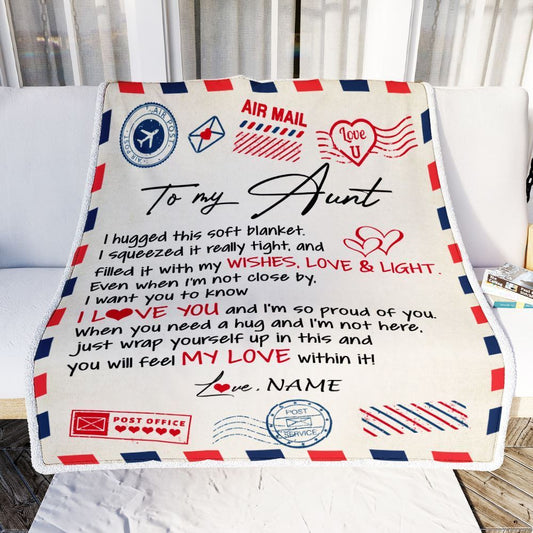 AIR POST
AIR POST
AIR MAIL
Love
U
To my Aunt
I hugged this soft blanket.
I squeezed it really tight, and
filled it with my WISHES, LOVE & LIGHT.
Even when I'm not close by,
I want you to know
I L❤VE YOU and I'm so proud of you.
When you need a hug and I'm not here,
just wrap yourself up in this and
you will feel MY LOVE within it!
L❤ve, NAME
POST OFFICE
POST
SERVICE